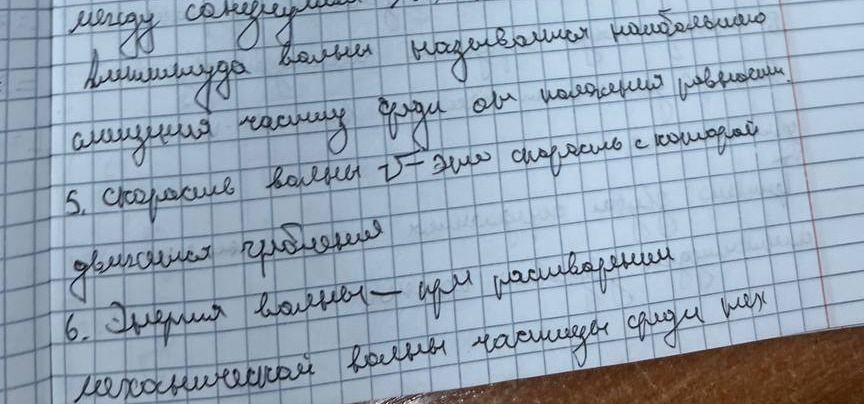 между
Амплитуда волны называются наибольшего
смещения частиц среды от положения равновесия.
5. Скорость волны υ – это скорость с которой
движется гребения
6. Энергия волны – при растворении
механической волны частицы среды мех